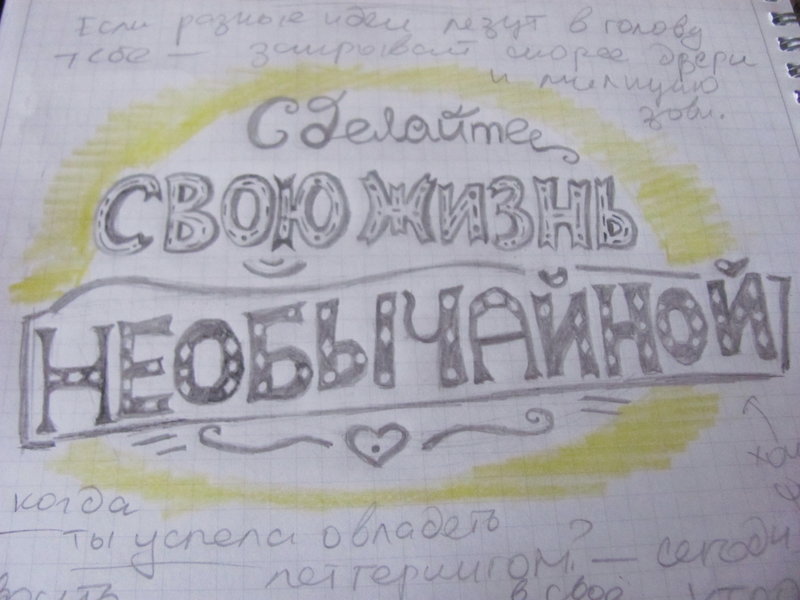 Если разные идеи лезут в голову
тебе — закрывай скорее двери
и милицию
зови.
Сделайте
СВОЮ ЖИЗНЬ
НЕОБЫЧАЙНОЙ
когда
ты успела овладеть
леттерингом? — сегодн
в свое